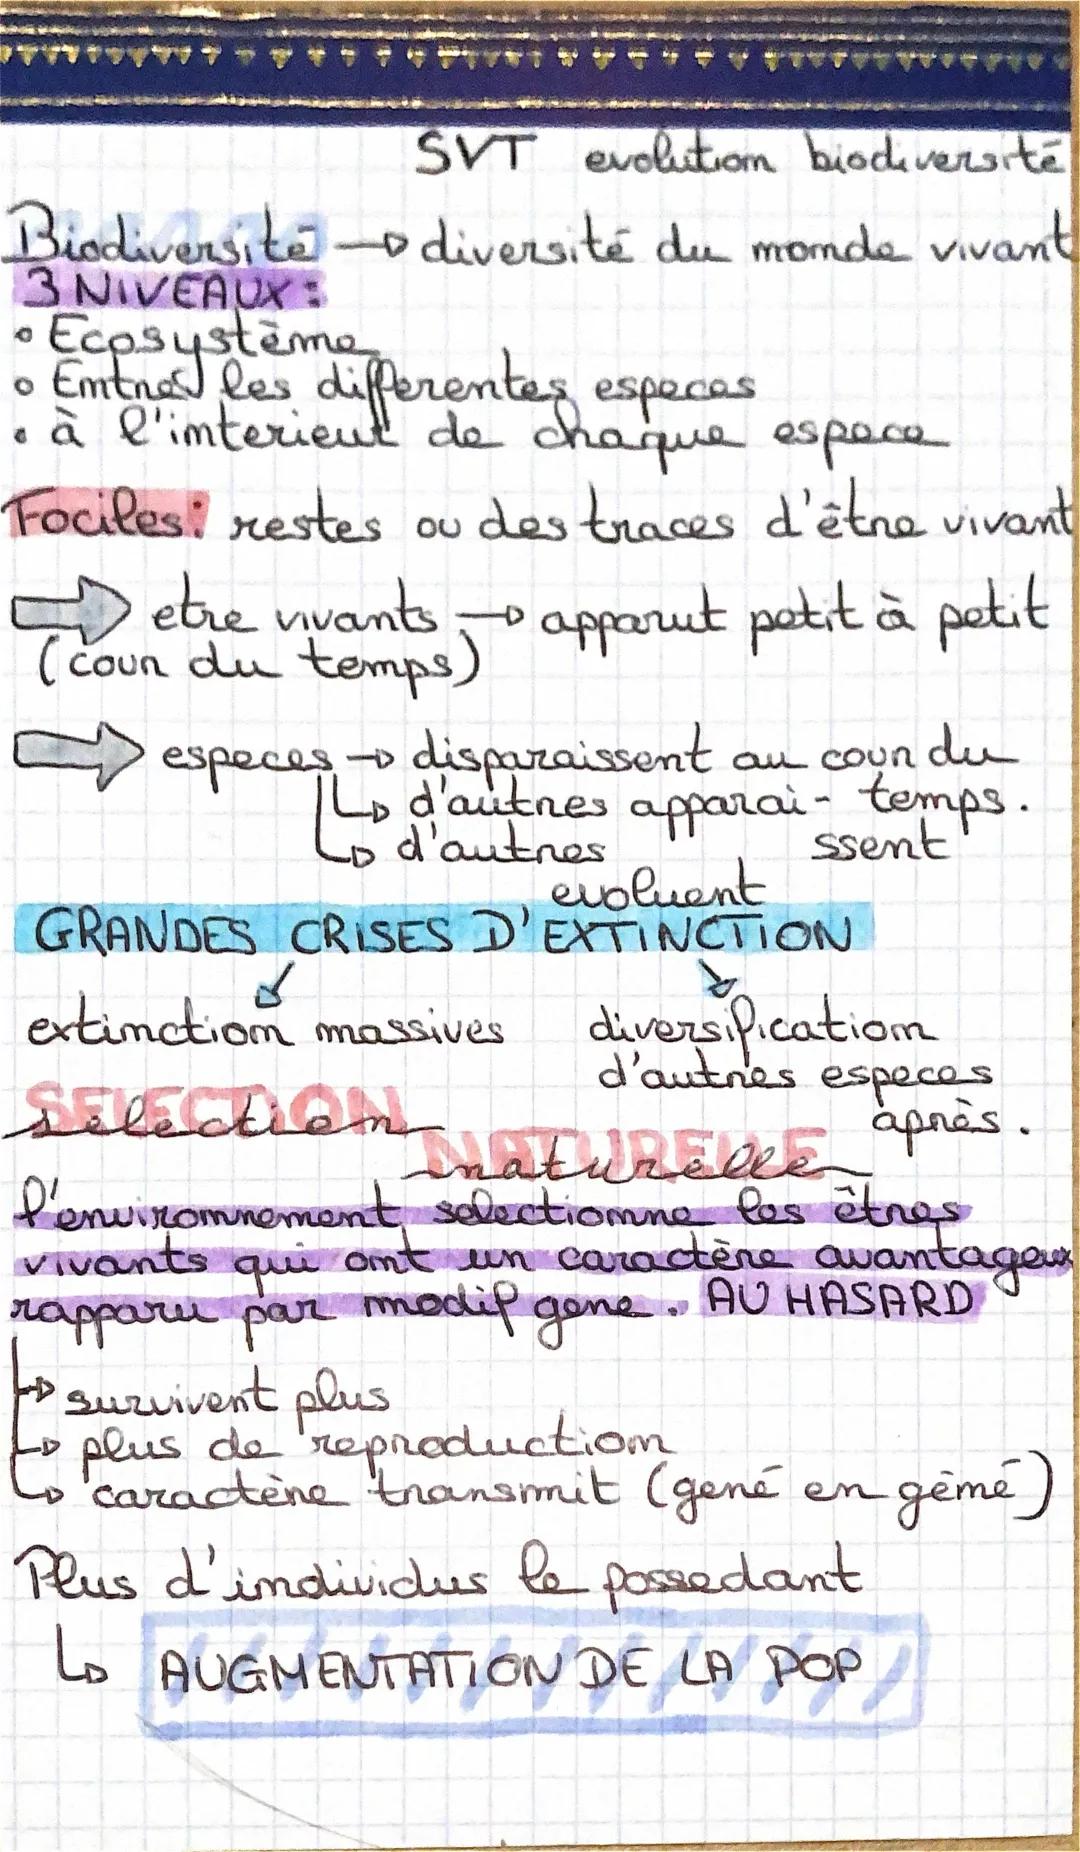 SVT evolution biodiversité
Biodiversité → diversité du monde vivant
3 NIVEAUX :
• Ecosystème
• Entres les differentes especes
• à l'interieur de chaque espece
Fociles: restes ou des traces d'être vivant
⇒ etre vivants → apparut petit à petit
(cour du temps)
⇒ especes → disparaissent au cour du
↳ d'autres apparai- temps.
↳ d'autres ssent
evoluent
GRANDES CRISES D'EXTINCTION
extinction massives diversification
d'autres especes
après.
SELECTION
selection
NATURELLE
naturelle
l'environnement selectionne les êtres
vivants qui ont un caractère avantageux
rapparu par modif gene. AU HASARD
↳ survivent plus
↳ plus de reproduction
↳ caractère transmit (gené en géné)
Plus d'individus le possedant
↳ AUGMENTATION DE LA POP